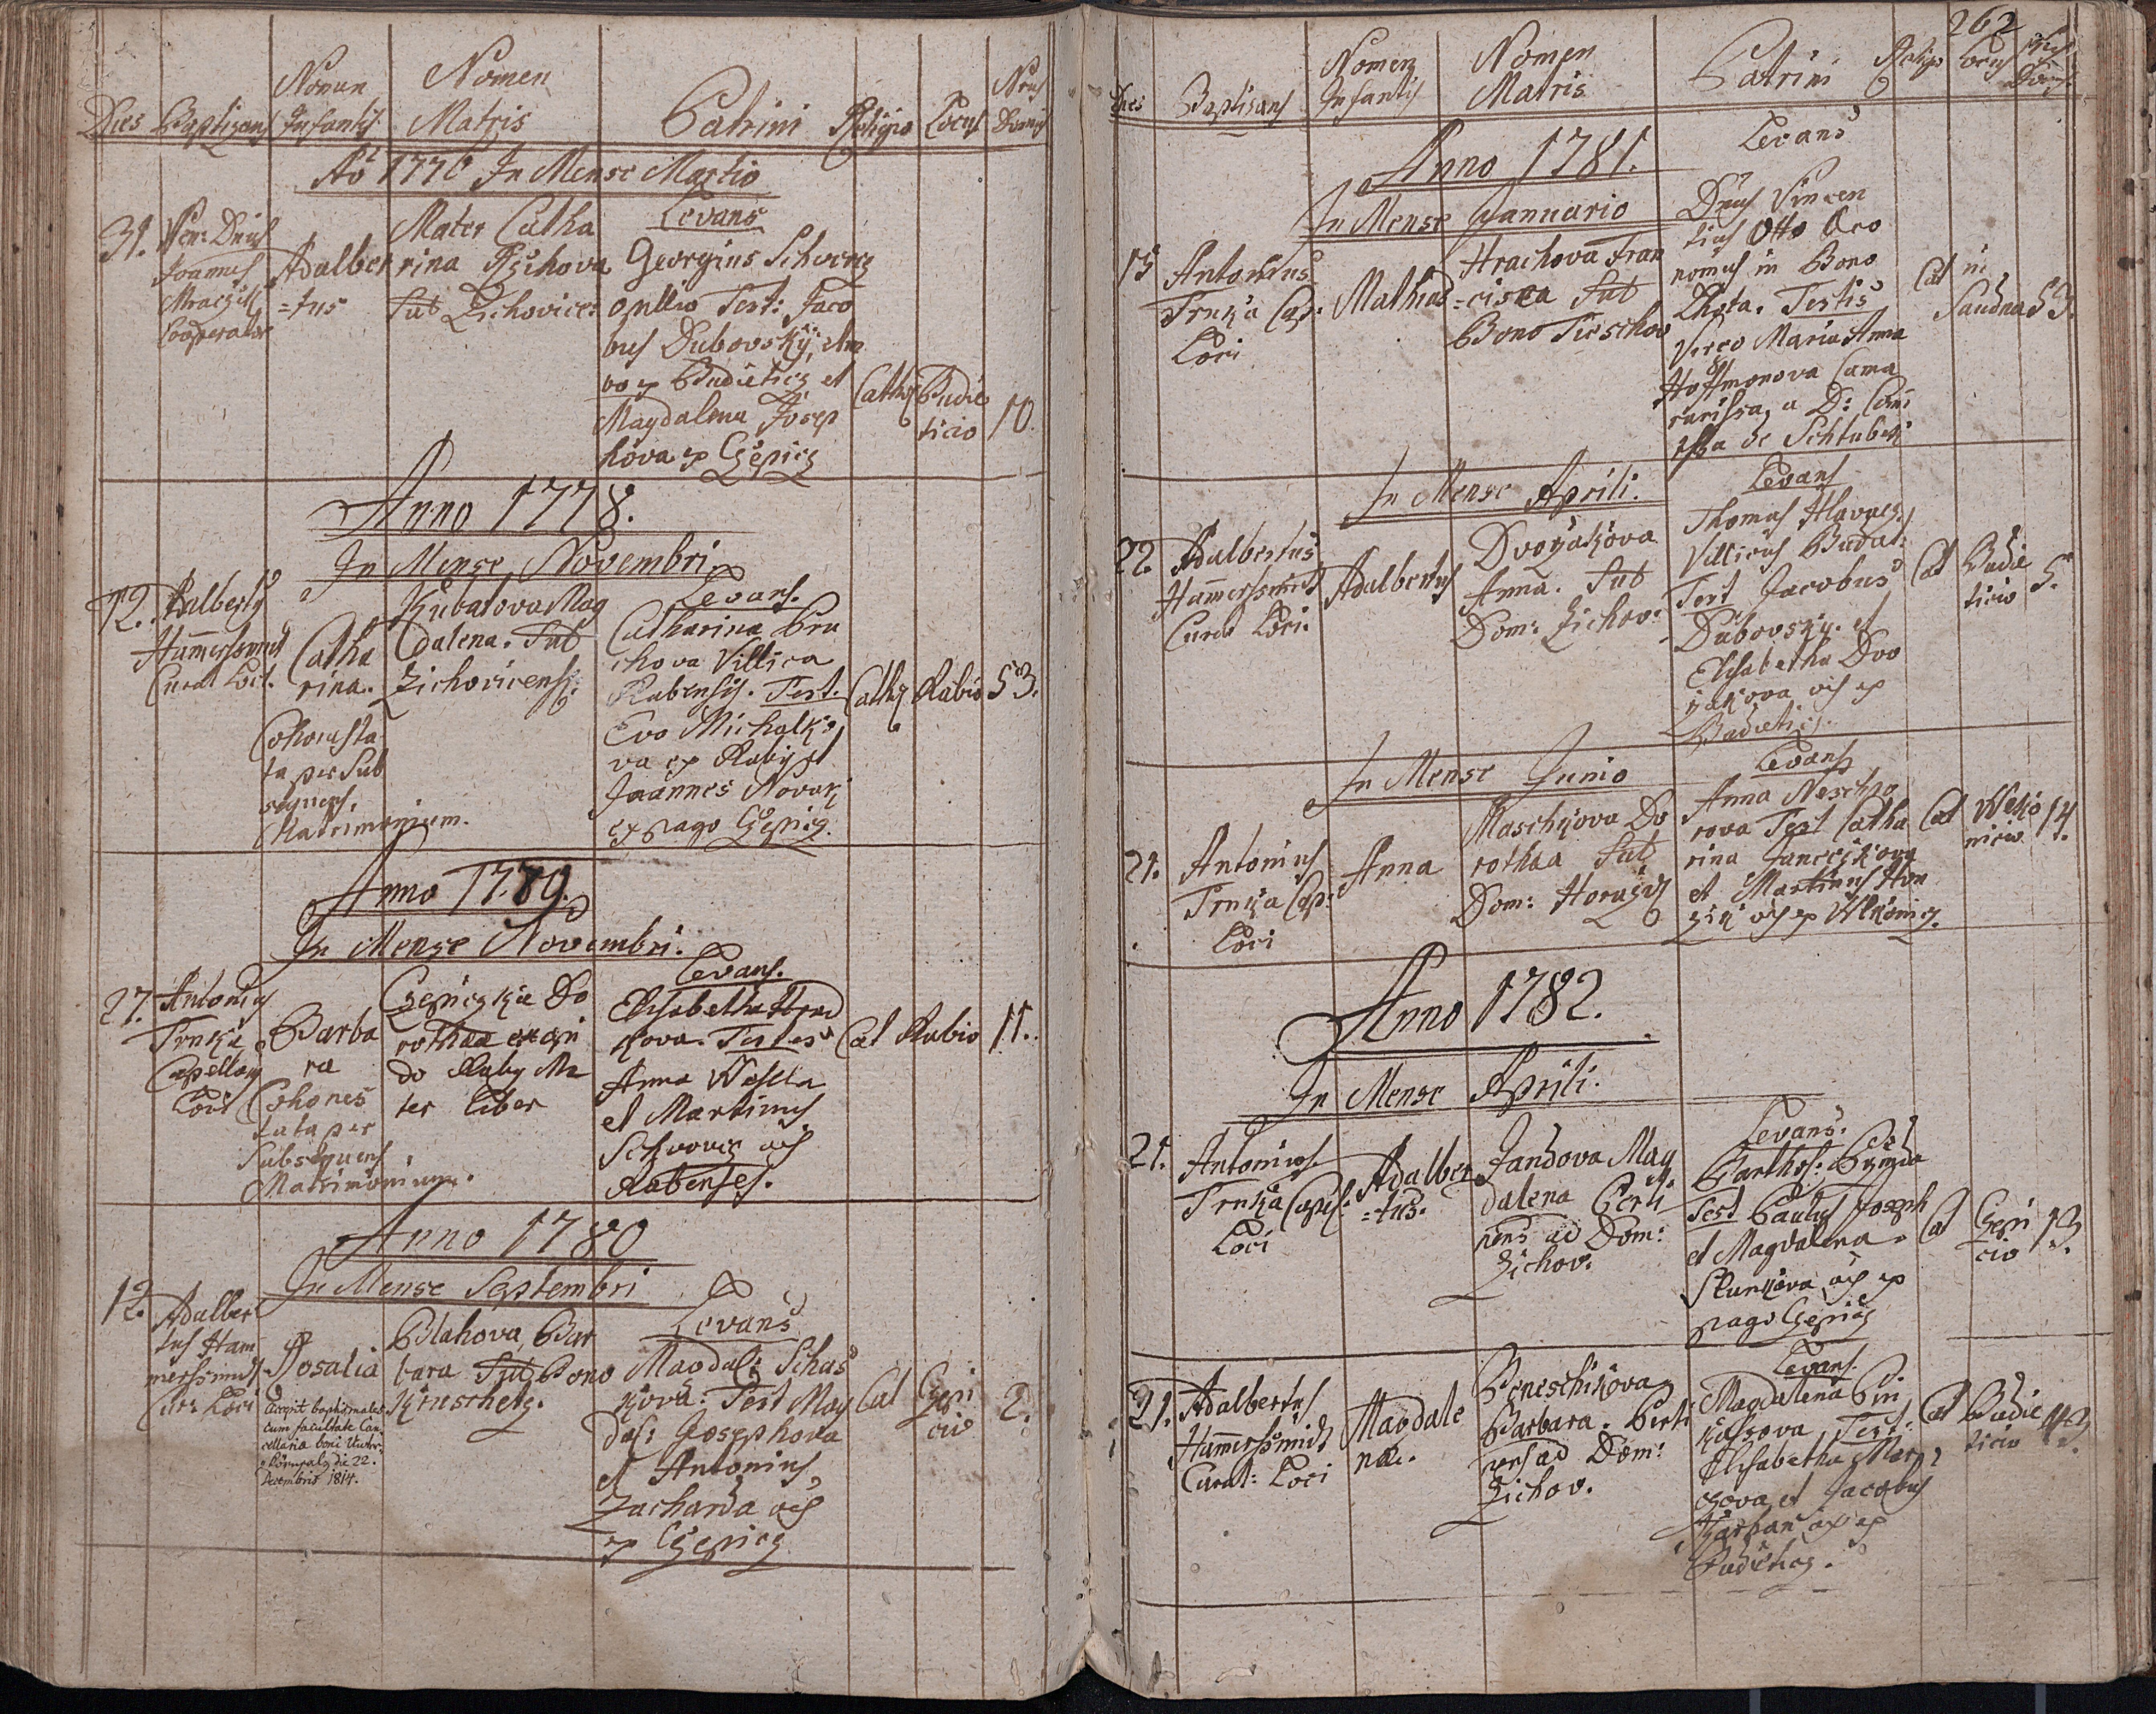 Dies Baptizans Nomen Infantis Nomen Matris Patrini Religio Locus Nrus Domus
Ao 1776 In Mense Martio
31. Ven: Dnus
Joannes
Cooperator
Adalber
=tus
Mater Catha
rina
Sub Zichovice:
Levans
Georgius Schwarcz
opilio Test: Jaco
bus Dubovsky, am
bo ex Budieticz et
Magdalena Josep
hova ex Czepicz
Cathol
Budie
ticio
10.
Anno 1778.
In Mense Novembri
12. Adalbertg
Hamerschmidt
Curat Loci.
Catha
rina.
Cohonesta
ta per Sub
sequens
Matrimonium.
Kubatova Mag
dalena. Sub
Zichovicensi:
Levans.
Catharina Pru
chova Villica
Rabensis. Test.
Eva Michalko
va ex Raby et
Joannes Novak
ex pago Czepicz.
Cathol
Rabio
53.
Anno 1779.
In Mense Novembri.
27. Antonius
Trnka
Capellan
Loci
Barba
ra
Cohones
tata per
Subsequens
Matrimonium.
Czepiczka Do
rothea ex opi
do Raby Ma
ter Liber
Levans.
Elisabetha Hrad
kova. Testes
Anna Wesela
et Martinus
Schwarcz oes
Rabenses.
Cat
Rabio
11.
Anno 1780
In Mense Septembri
12. Adalber
tus Ham
merschmidt
Cur: Loci
Rosalia
Accepit baptismales
cum facultate Can
cellariae boni
die 22.
Decembris 1814.
Blahova, Bar
bara Sub Bono
Levans
Magdal: Schas
kova. Test Mag
dal: Josephova
et Antonius
Zacharda oes
ex Czepicz
Cat
Czepi
cio
2.
262
Dies Baptisans Nomen Infantis Nomen Matris Patrini Religio Locus Nrus Domus
Anno 1781.
In Mense Januario
15 Antonius
Trnka Cap:
Loci
Mathias
Hrachova Fran
=cisca Sub
Bono Tieschov
Levans
Dnus Vincen
tius Otto Oeco
nomus in Bono
Lhota. Testis
Virgo Maria Anna
Hoffmonova Cama
rarissa, a D: Comi
tissa de
Cat
in
53.
In Mense Aprili.
22. Adalbertus
Hammerschmidt
Curat Loci.
Adalbertus
Dvorzakova
Anna. Sub
Dom: Zichov:
Levans
Thomas Hlavacz
Villicus Budat:
Test Jacobus
Dubovsky. et
Elisabetha Dvo
rzakova oes ex
Budieticz.
Cat
Budie
ticio
5.
In Mense Junio
21. Antonius
Trnka Cap:
Loci
Anna
Maschkova Do
rothea Sub
Dom: Horazd
Levans
Anna
rova Test Catha
rina
et Martinus Hon
zik oes ex Wlkonicz.
Cat
Wlko
nicio
14.
Anno 1782.
In Mense Aprili.
21. Antonius
Trnka Capel:
Loci
Adalber
=tus.
Jandova Mag
dalena Perti
nens ad Dom:
Zichov.
Levans.
Barthol:
Test Paulus Joseph
et Magdalena
oes ex
pago Czepicz
Cat
Czepi
cio
13.
21. Adalbertus
Hammerschmidt
Curat: Loci
Magdale
na.
Beneschikova
Barbara. Perti
nens ad Dom:
Zichov.
Levans.
Magdalena
Test:
Elisabetha
et Jacobus
oes ex
Budieticz.
Cat
Budie
ticio